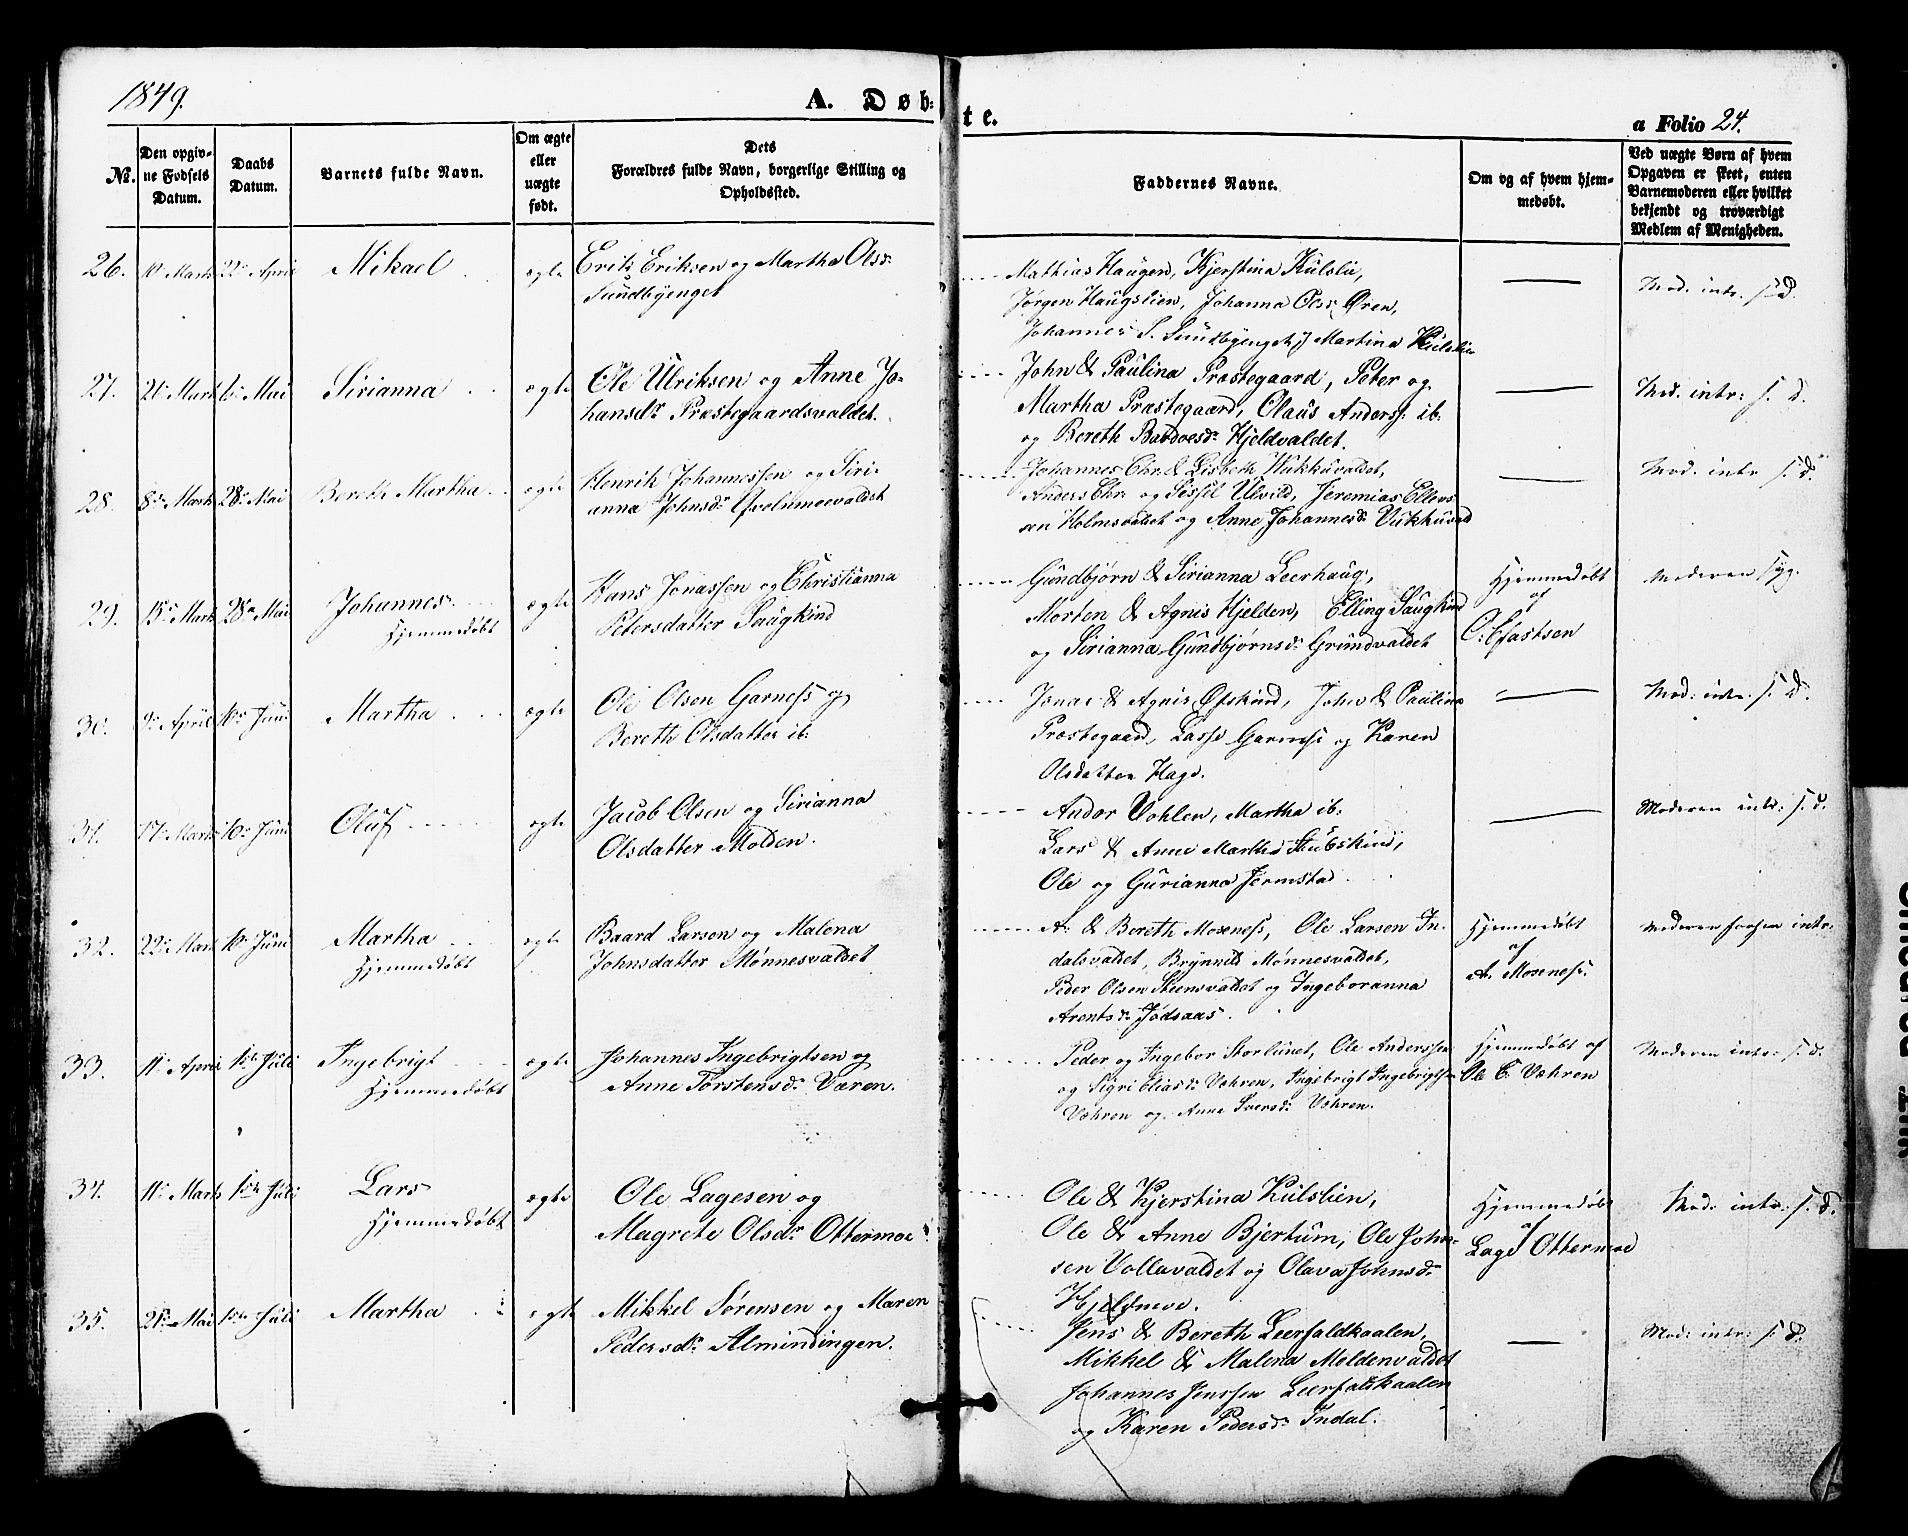 1849.
A. Døb:
te.
a Folio 24.
No.
Den opgiv-
ne Fødsels
Datum.
Daabs
Datum.
Barnets fulde Navn.
Om ægte
eller
uægte
født.
Dets
Forældres fulde Navn, borgerlige Stilling og
Opholdssted.
Faddernes Navne.
Om og af hvem hjem-
medøbt.
Ved uægte Børn af hvem
Opgaven er skeet, enten
Barnemoderen eller hvilket
bekjendt og troværdigt
Medlem af Menigheden.
26. Marts 22 April Mikael ægte Erik Eriksen og Martha Olsd:
Sundbyenget
Mathias Haugen, Kjerstina Kulslie,
Jørgen Haugslien, Johanna Olsd: Øren,
Johannes S. Sundbyenget, Martina Kulslie
Mod: intr: s. d.
27. 21 Marts Mai Sirianna ægte Ole Ulriksen og Anne Jo-
hansdr Præstegaardsvaldet.
John & Paulina Præstegaard, Peter og
Martha Præstegaard, Olaus Anders: ib:
og Bereth Hjeldvaldet.
Mod. intr: s. d.
28. 8de Marts 28 Mai Bereth Martha ægte Henrik Johannessen og Siri-
anna Johnsdr Qvelumoevaldet
Johannes Chr. & Lisbeth Vukkuvaldet,
Anders Chr: og Sissel Ulvild, Jeremias Ellevs
en Holmsvaldet og Anne Johannesd: Vukkuvald
Mod. intr s. d.
29. 15de Marts 28de Mai Johannes
Hjemmedøbt
ægte Hans Jonassen og Christianna
Petersdatter Saugkind
Gundbjørn & Sirianna Leerhaug,
Morten & Agnis Hjelden, Elling Saugkind
og Sirianna Gundbjørnsd: Grundvaldet
Hjemmedøbt
af
C: Efastsen
Moderen syg.
30. 9de April 10de Juni Martha ægte Ole Olsen Garness og
Bereth Olsdatter ib:
Jonas & Agnis Østkind, John & Paulina
Præstegaard, Lasse Garness og Karen
Olsdatter Hage.
Mod: intr: s. d.
31. 17de Marts 10de Juni Oluf ægte Jacob Olsen og Sirianna
Olsdatter Molden.
Andor Vohlen, Martha ib:
Lars & Anne Martha Stubskind,
Ole og Gurianna Jermstad
Moderen intr: s. d.
32. 22de Marts 10de Juni Martha
Hjemmedøbt
ægte Baard Larsen og Malena
Johnsdatter Mønnesvaldet
A: & Bereth Moseness, Ole Larsen In-
dalsvaldet, Brynnild Mønnesvaldet,
Peder Olsen Steensvaldet og Ingeboranna
Arentsd: Jødsaas.
Hjemmedøbt
af
A. Moseness.
Moderen forhen intr.
33. 11te April 1ste Juli Ingebrigt
Hjemmedøbt
ægte Johannes Ingebrigtsen og
Anne Torstensd: Væren.
Peder og Ingebor Storlunet, Ole Anderssen
og Sigri Eliasd: Væhren, Ingebrigt Ingebrigtsen
Væhren og Anne Iversd: Væhren.
Hjemmedøbt af
Ole E. Væhren
Moderen intr: s. d.
34. 11te Marts 1ste Juli Lars
Hjemmedøbt
ægte Ole Lagesen og
Magrete Olsdr Ottermoe.
Ole & Kjerstina Kulslien,
Ole & Anne Bjertum, Ole John-
sen Vollavaldet og Olava Johnsd:
Hjeldmoe.
Hjemmedøbt
af
Lage Ottermoe
Mod: intr: s. d.
35. 21de Mai 1ste Juli Martha ægte Mikkel Sørensen og Maren
Pedersdr Almindingen.
Jens & Bereth Leerfaldkaalen,
Mikkel & Malena Moldenvaldet
Johannes Jenssen Leerfaldkaalen
og Karen Pedersd: Indal.
Mod: intr: s: d: